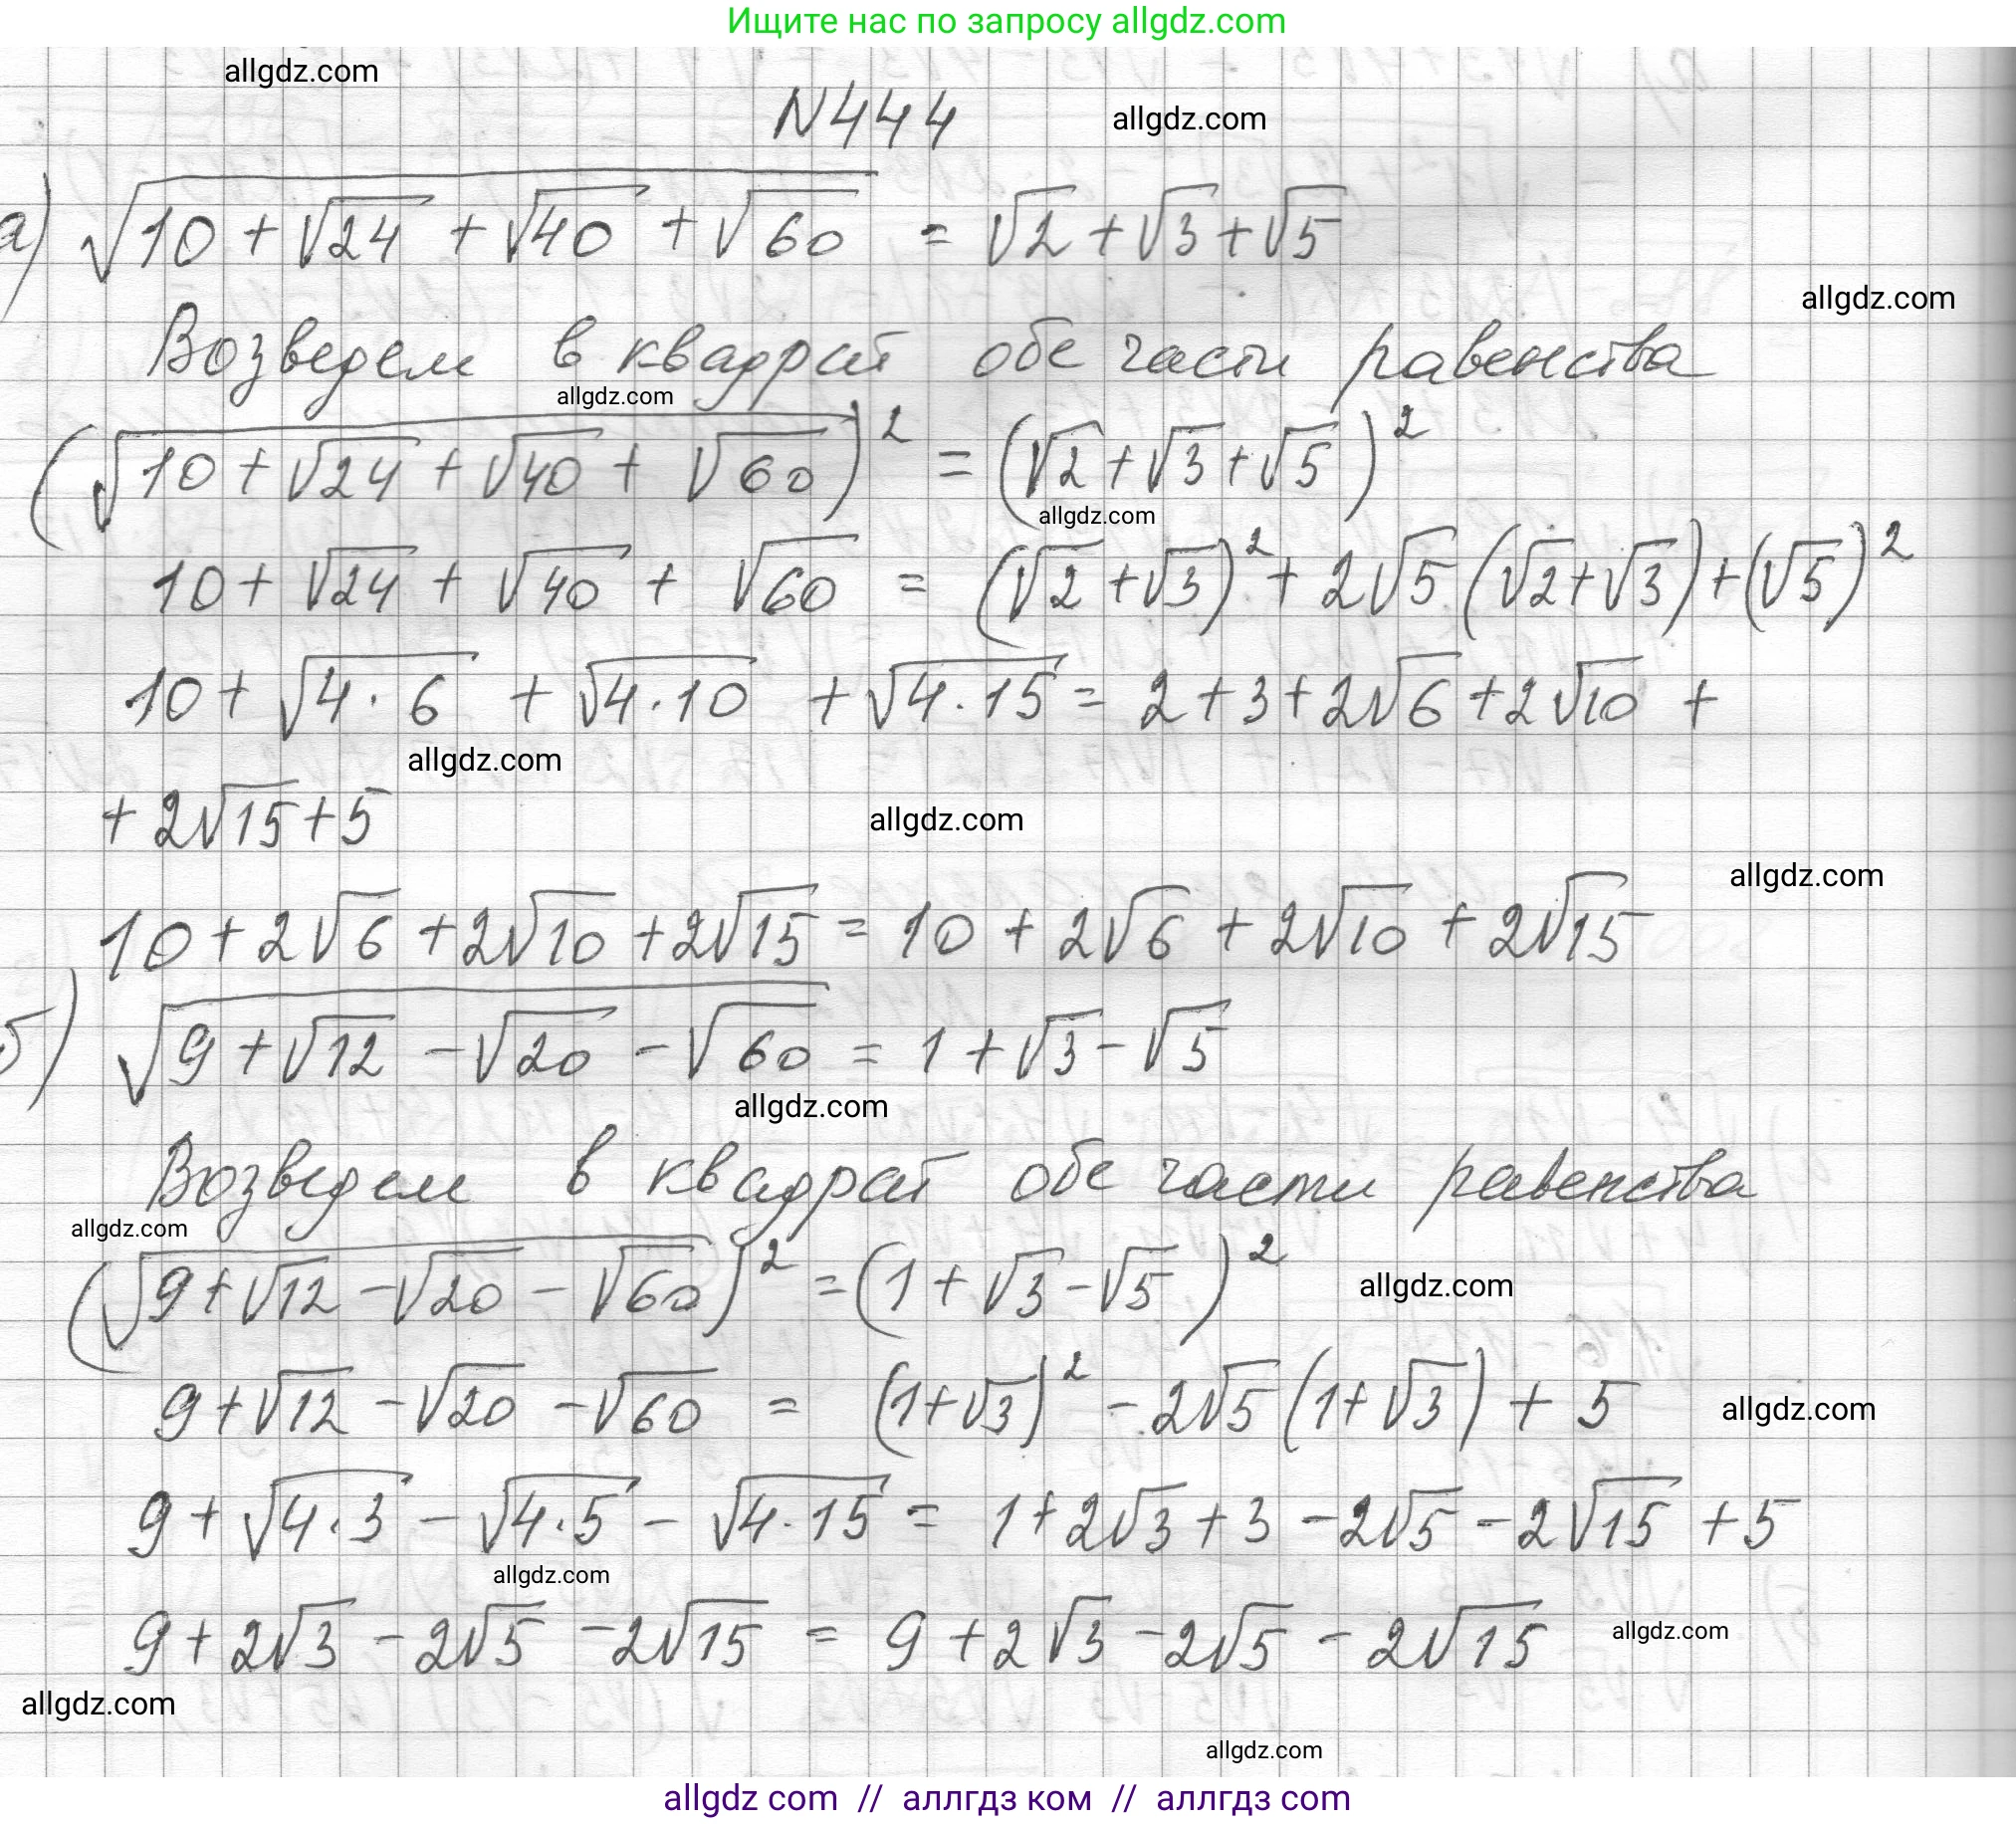 Ищите нас по запросу allgdz.com
allgdz.com
N444
allgdz.com
а) √(10 + √24 + √40 + √60) = √2 + √3 + √5
allgdz.com
Возведем в квадрат обе части равенства
allgdz.com
(√(10 + √24 + √40 + √60))² = (√2 + √3 + √5)²
allgdz.com
10 + √24 + √40 + √60 = (√2 + √3)² + 2√5 (√2 + √3) + (√5)²
10 + √(4 · 6) + √(4 · 10) + √(4 · 15) = 2 + 3 + 2√6 + 2√10 +
allgdz.com
+ 2√15 + 5
allgdz.com
allgdz.com
10 + 2√6 + 2√10 + 2√15 = 10 + 2√6 + 2√10 + 2√15
б) √(9 + √12 - √20 - √60) = 1 + √3 - √5
allgdz.com
Возведем в квадрат обе части равенства
allgdz.com
(√(9 + √12 - √20 - √60))² = (1 + √3 - √5)²
allgdz.com
9 + √12 - √20 - √60 = (1 + √3)² - 2√5 (1 + √3) + 5
allgdz.com
9 + √(4 · 3) - √(4 · 5) - √(4 · 15) = 1 + 2√3 + 3 - 2√5 - 2√15 + 5
allgdz.com
9 + 2√3 - 2√5 - 2√15 = 9 + 2√3 - 2√5 - 2√15
allgdz.com
allgdz.com
allgdz.com
allgdz com // аллгдз ком // аллгдз com